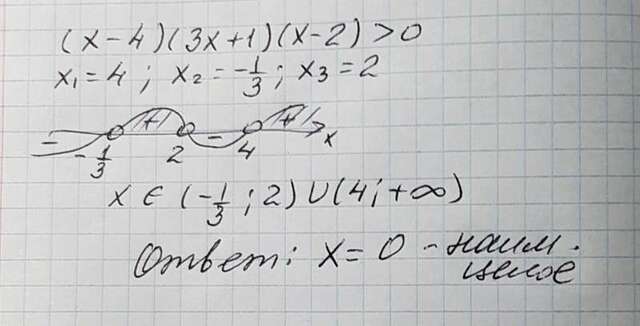 (x-4)(3x+1)(x-2)>0
x₁=4; x₂=-1/3; x₃=2
- + - + x
-1/3 2 4
x ∈ (-1/3; 2) ∪ (4; +∞)
Ответ: x=0 - наим.
целое